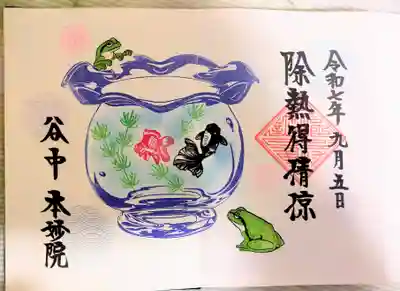 令和七年 九月五日
除熱得清涼
谷中 本妙院